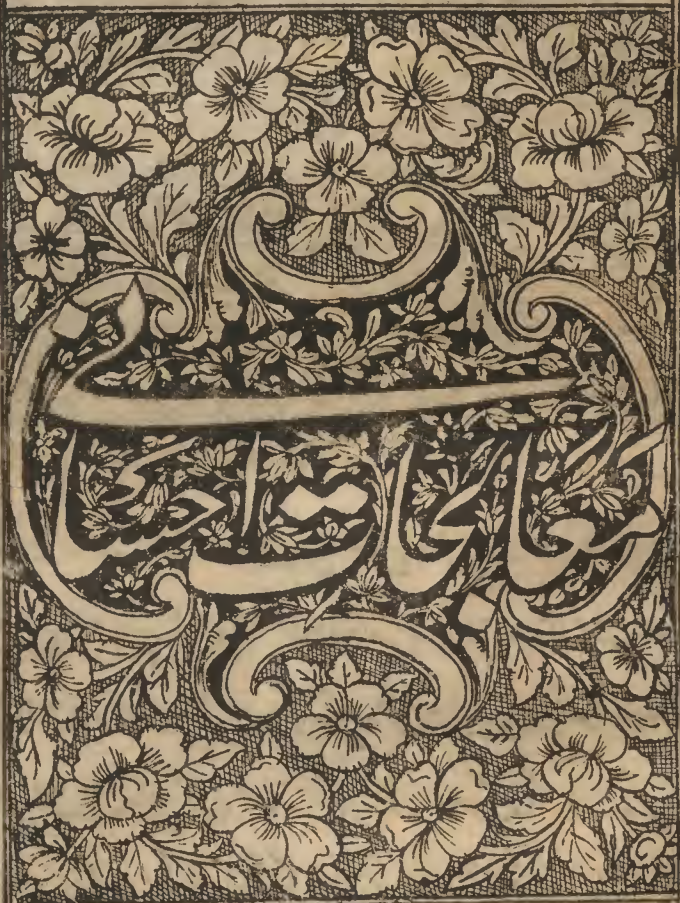 معالجات احسانی